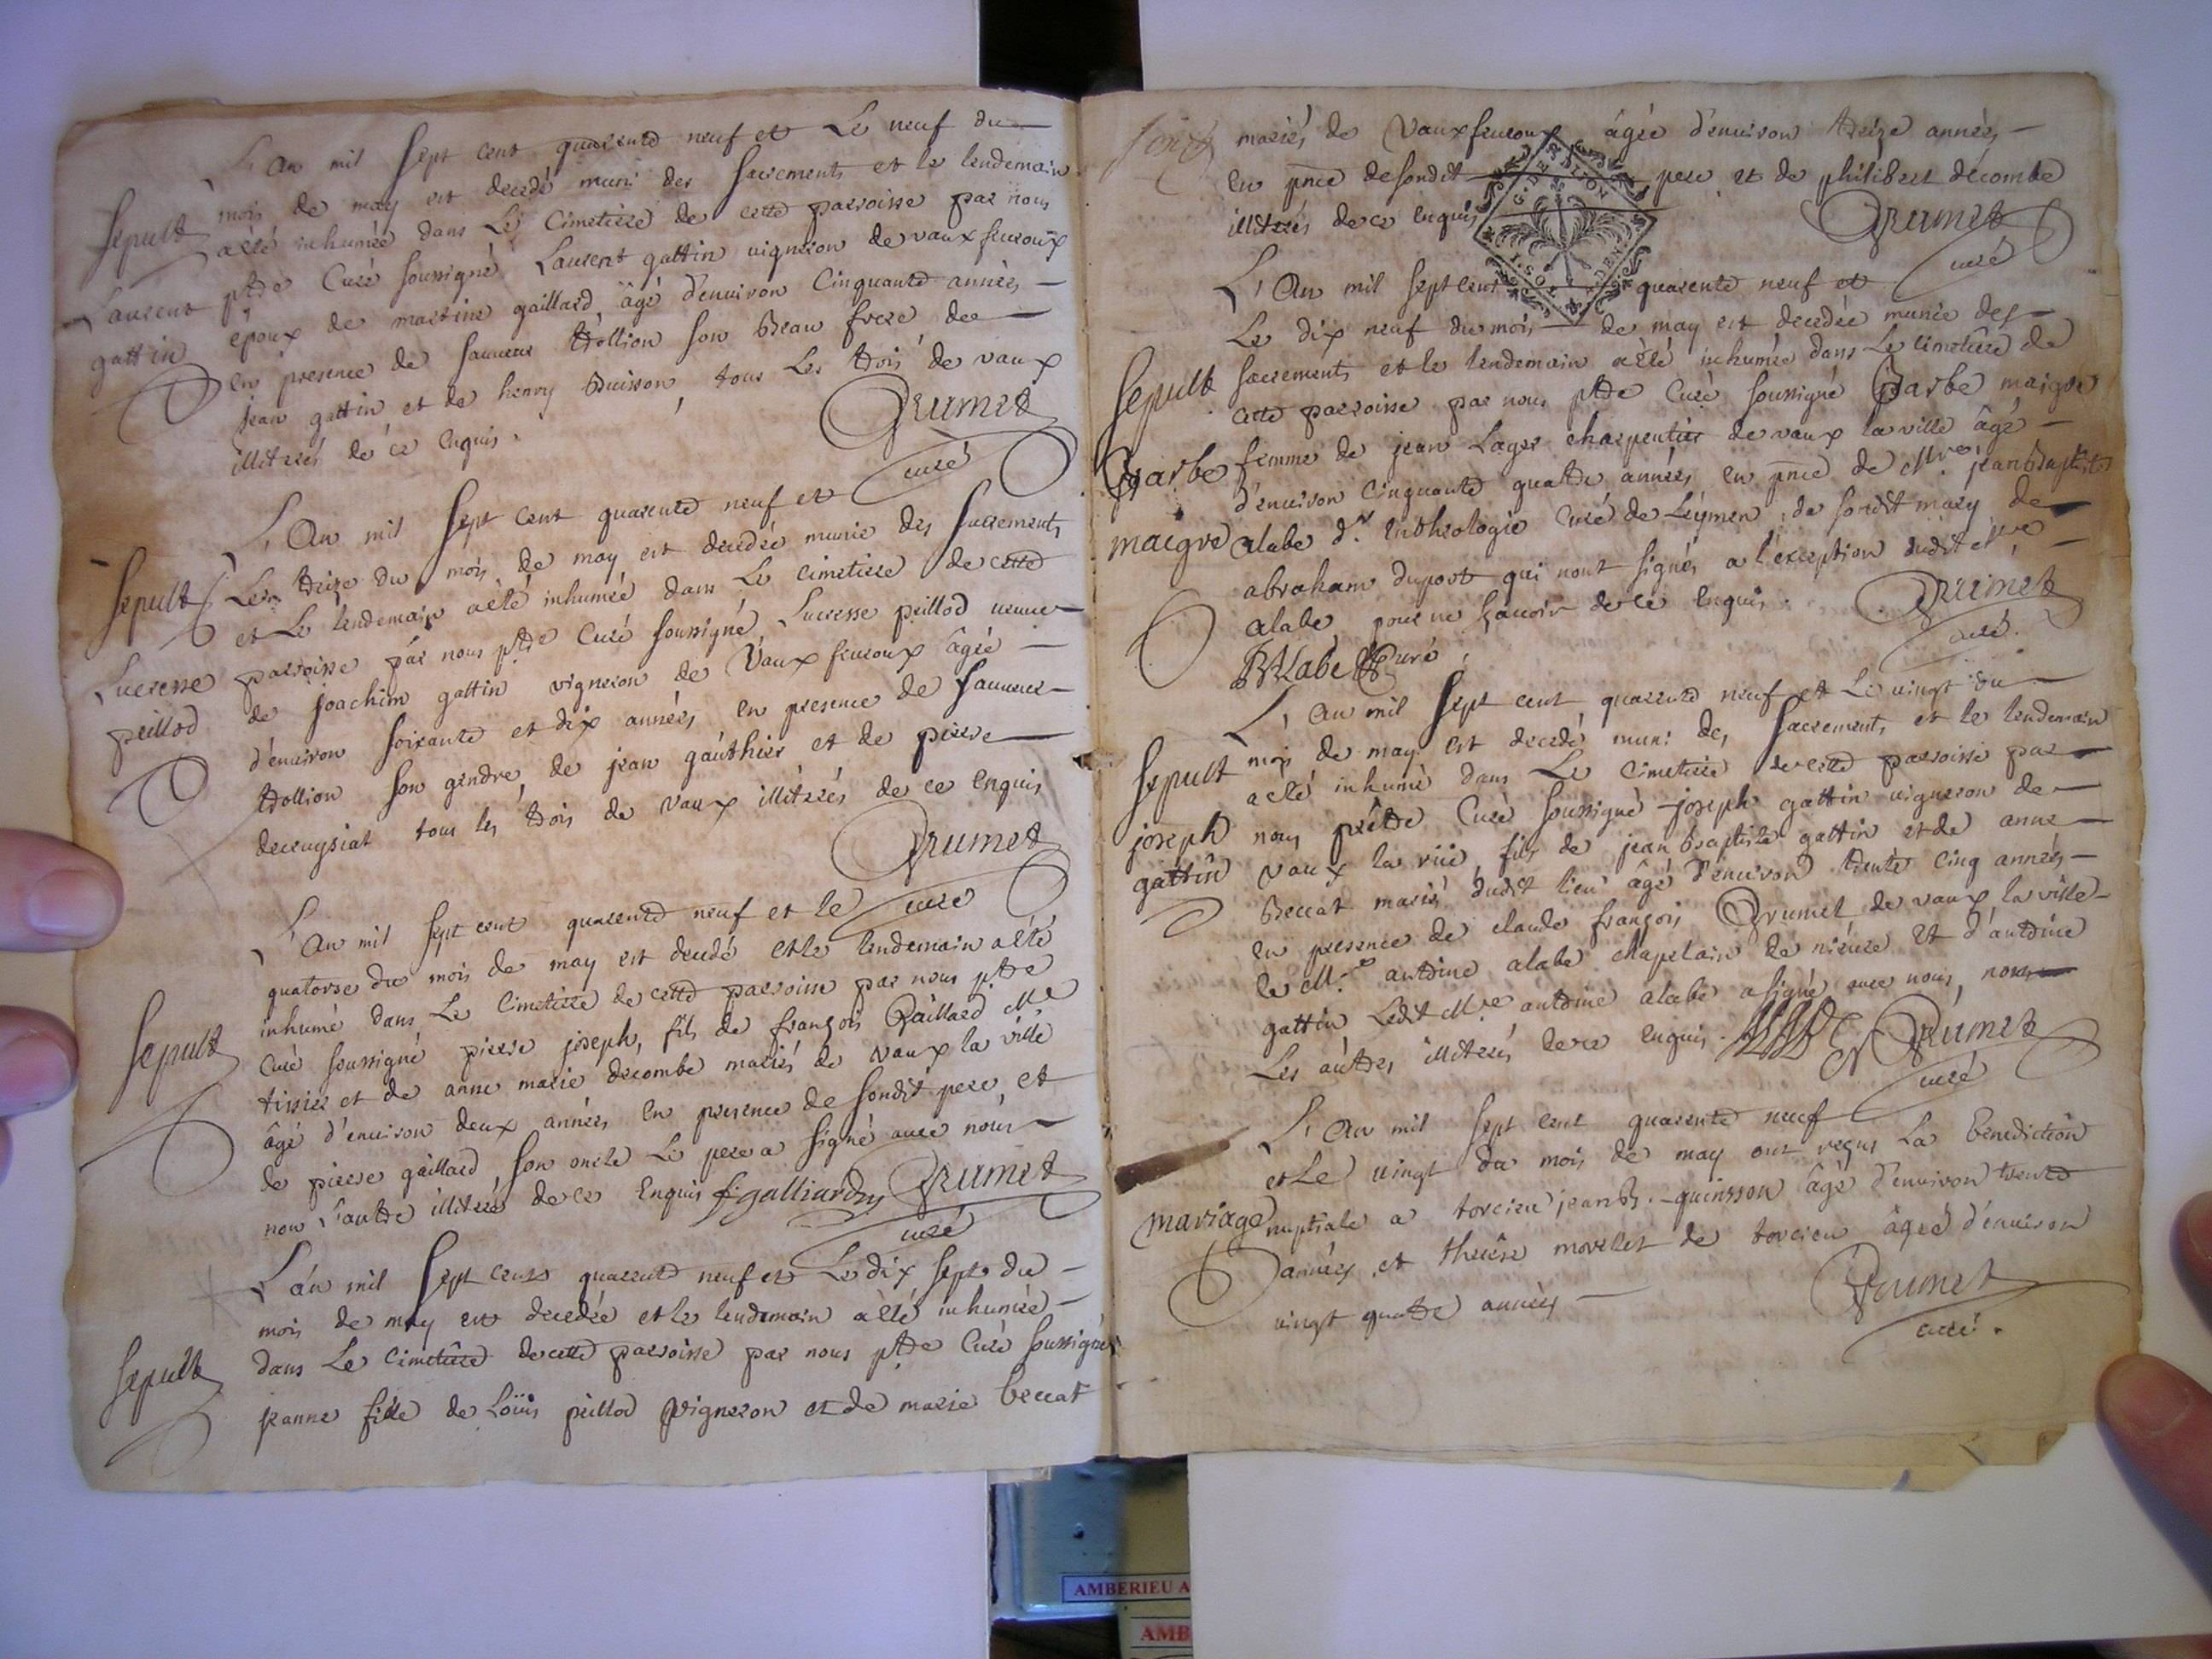 L'An mil sept cent quarente neuf et Le neuf du
mois de may est decedé muni des sacrements et le lendemain
Sepult
a été inhumée dans Le Cimetiere de cette parroisse par nous
ptre Curé soussigné Laurent gattin vigneron de vaux feuroux
Laurent
gattin
epoux de martine gaillard, âgé d'enuiron Cinquante années
en presence de sauueur trollion son Beau frere de
jean gattin et de henry Buisson, tous Les trois de vaux
illiterés de ce Enquis.
Grumet
curé
L'An mil sept cent quarente neuf et
Le treize du mois de may est decedée munie des sacrements
Sepult
et Le lendemain a été inhumée dans Le cimetiere de cette
parroisse par nous ptre Curé soussigné, Lucresse peillod ueuue
Lucresse
peillod
de Joachim gattin vigneron de Vaux feuroux âgée
d'enuiron soixante et dix années en presence de sauueur
trollion son gendre, de jean gauthier et de pierre
decruysiat tous les trois de vaux illiterés de ce Enquis
Grumet
curé
L'An mil sept cent quarente neuf et le
quatorse du mois de may est decedé et le lendemain a été
inhumé dans Le Cimetiere de cette parroisse par nous ptre
Sepult
Curé soussigné pierre joseph, fils de françois Gaillard Me
tissier et de anne marie decombe mariés de vaux la ville
âgé d'enuiron deux années en presence de sondit pere, et
de pierre gaillard, son oncle Le pere a signé auec nous
non L'autre illiteré de ce Enquis f galliardz Grumet
curé
L'an mil sept cent quarente neuf et Le dix sept du
mois de may est decedée et le lendemain a été inhumée
Sepult
dans Le Cimetiere de cette parroisse par nous ptre Curé soussigné
jeanne fille de Loüis peillod vigneron et de marie beccat
mariés de Vaux feuroux âgée d'enuiron treize années
en pnce de sondit pere et de philibert decombe
illiterés de ce Enquis
Grumet
curé
G. DE LION
L'An mil sept cent quarente neuf et
Le dix neuf du mois de may est decedée munie des
sacrements et le lendemain a été inhumée dans Le Cimetiere de
Sepult
cette parroisse par nous ptre Curé soussigné Barbe maigre
Barbe
maigre
femme de jean Lager charpentier de vaux la ville âgé
d'enuiron Cinquante quatre années en pnce de Mre jean Baptiste
alabe dr. en theologie Curé de Leymen, de sondit mary de
abraham duport qui n'ont signés a l'exception dudit Mre
alabe pour ne sçauoir de ce Enquis.
Grumet
curé.
BAlabe Curé
L'An mil sept cent quarente neuf et Le uingt du
mois de may est decedé muni des sacrements et le lendemain
Sepult
a été inhumé dans Le Cimetiere de cette parroisse par
joseph
gattin
nous prêtre Curé soussigné joseph gattin uigneron de
vaux la rüe, fils de jean Baptiste gattin et de anne
Beccat mariés dudit lieu âgé d'enuiron trente Cinq années
en presence de claude françois Grumet de vaux la ville
de Mre antoine alabe chapelain de nieure Et d'antoine
gattin Ledit Mre antoine alabe a signé auec nous, non
Les autres illiterés de ce enquis.
Grumet
curé
L'An mil sept cent quarente neuf
et Le uingt du mois de may ont reçus La benediction
mariage
nuptiale a torcieu jean B. quinsson âgé d'enuiron trente
années et therese morelet de torcieu âgée d'enuiron
uingt quatre années
Grumet
curé.
AMBERIEU A
AMB